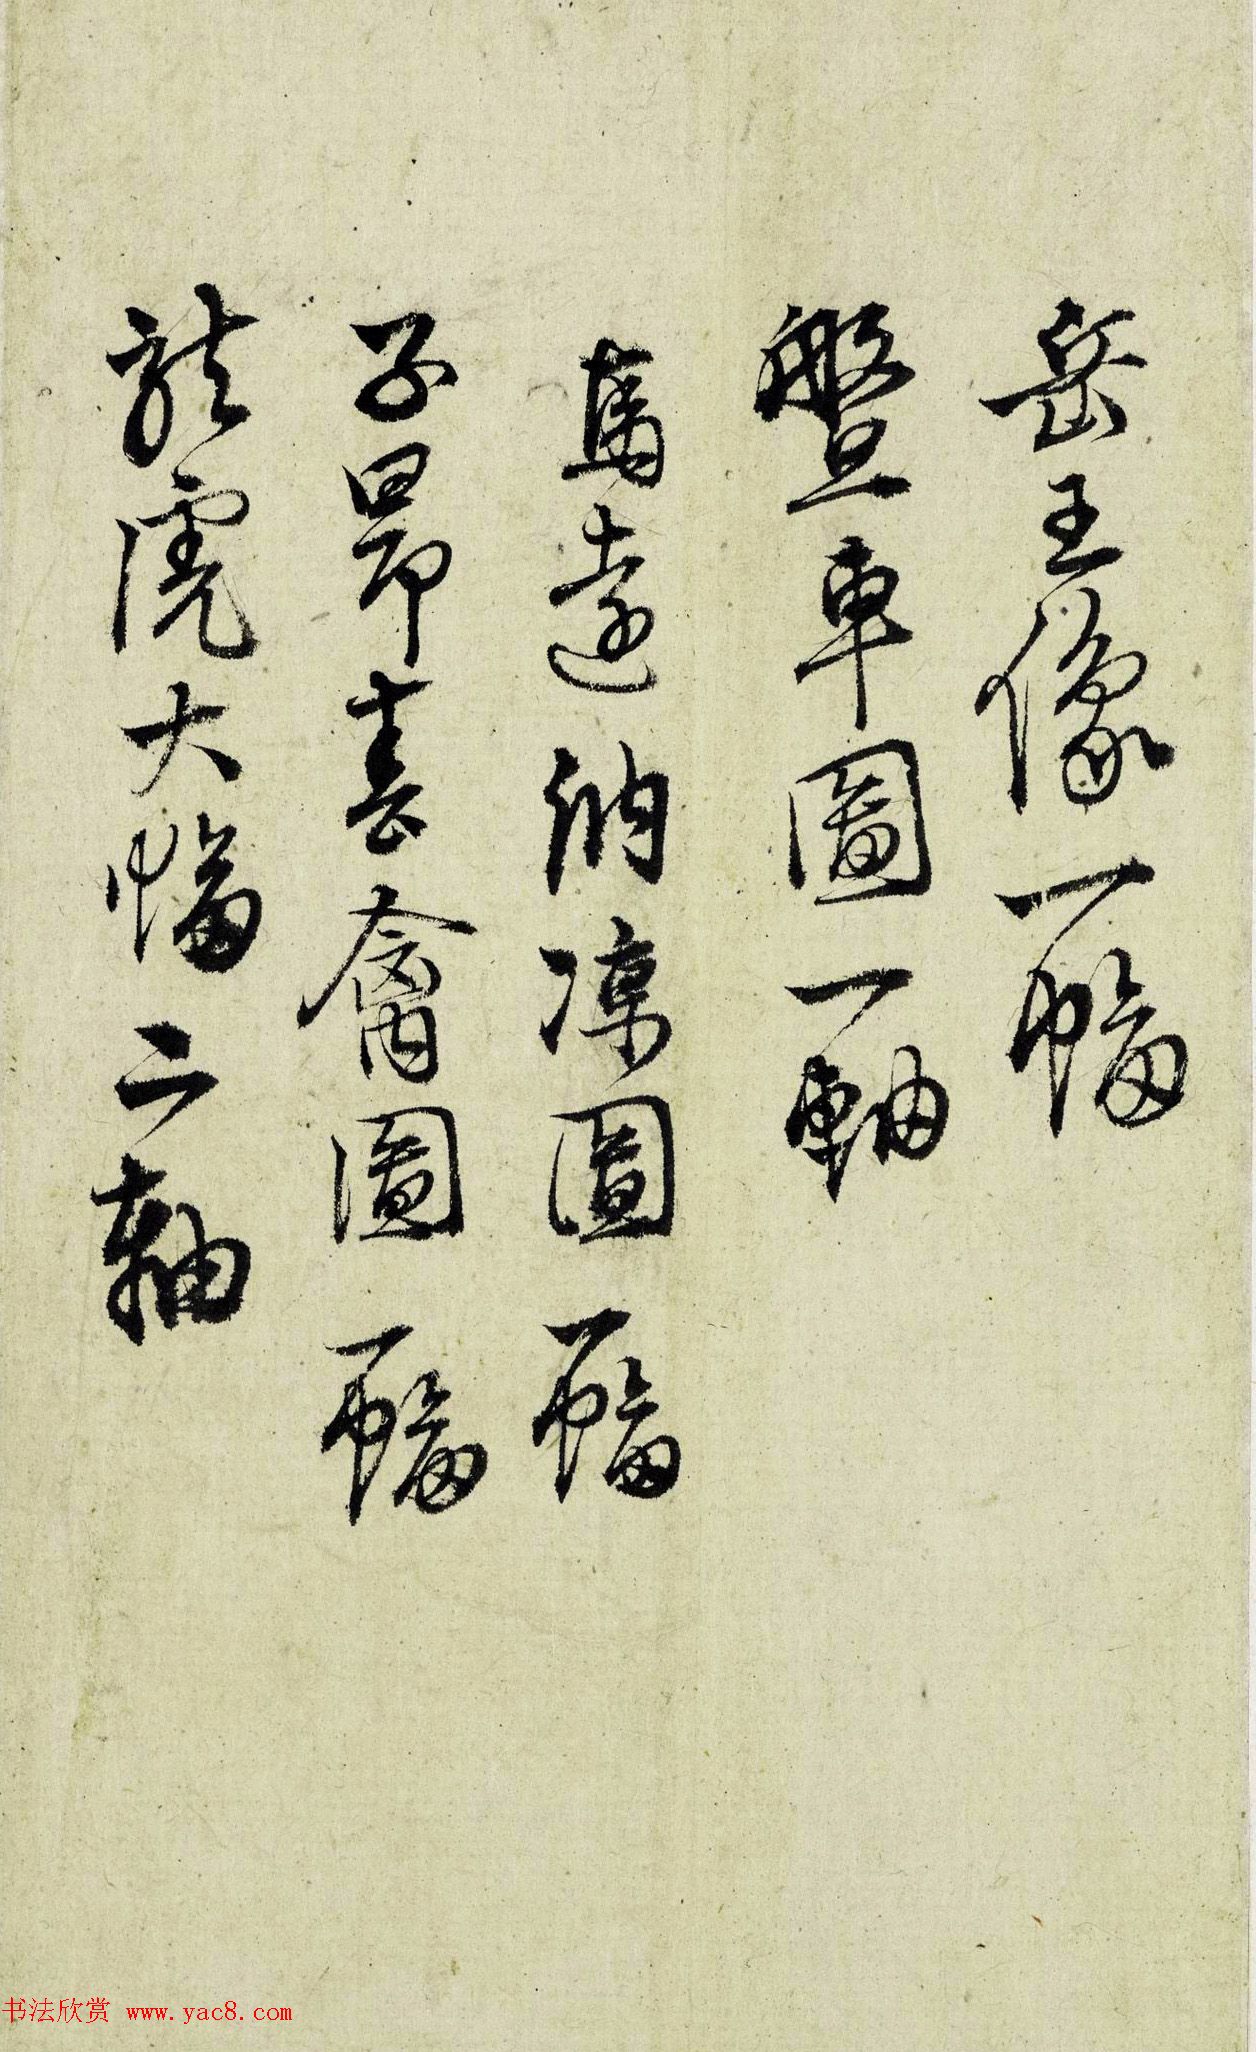 岳王像一幅
盤車圖一軸
馬遠納涼圖一幅
子昂喜禽圖一幅
龍虎大幅二軸
书法欣赏 www.yac8.com